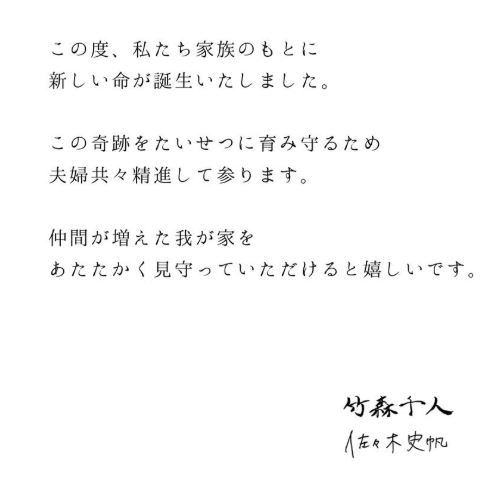 この度、私たち家族のもとに
新しい命が誕生いたしました。
この奇跡をたいせつに育み守るため
夫婦共々精進して参ります。
仲間が増えた我が家を
あたたかく見守っていただけると嬉しいです。
竹森千人
佐々木史帆